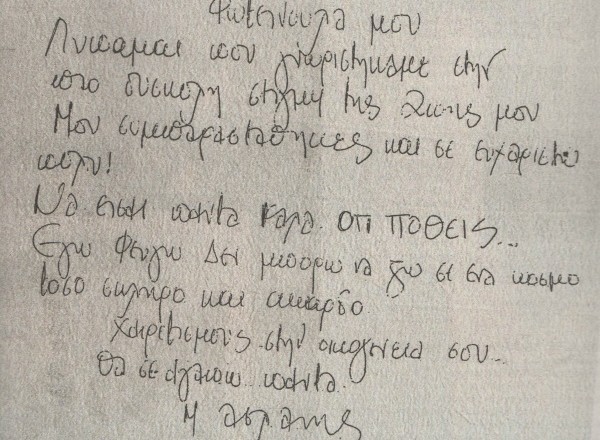 Φωτεινούλα μου
Λυπαμαι που γνωριστηκαμε στην
πιο δυσκολη στιγμη της ζωης μου
Μου συμπαρασταθηκες και σε ευχαριστω
πολυ!
Να εισαι παντα καλα. ΟΤΙ ΠΟΘΕΙΣ...
Εγω Φευγω Δεν μπορω να ζω σε ενα κοσμο
τοσο σκληρο και ακαρδο
Χαιρετισμους στην οικογενεια σου...
Θα σε αγαπω παντα.